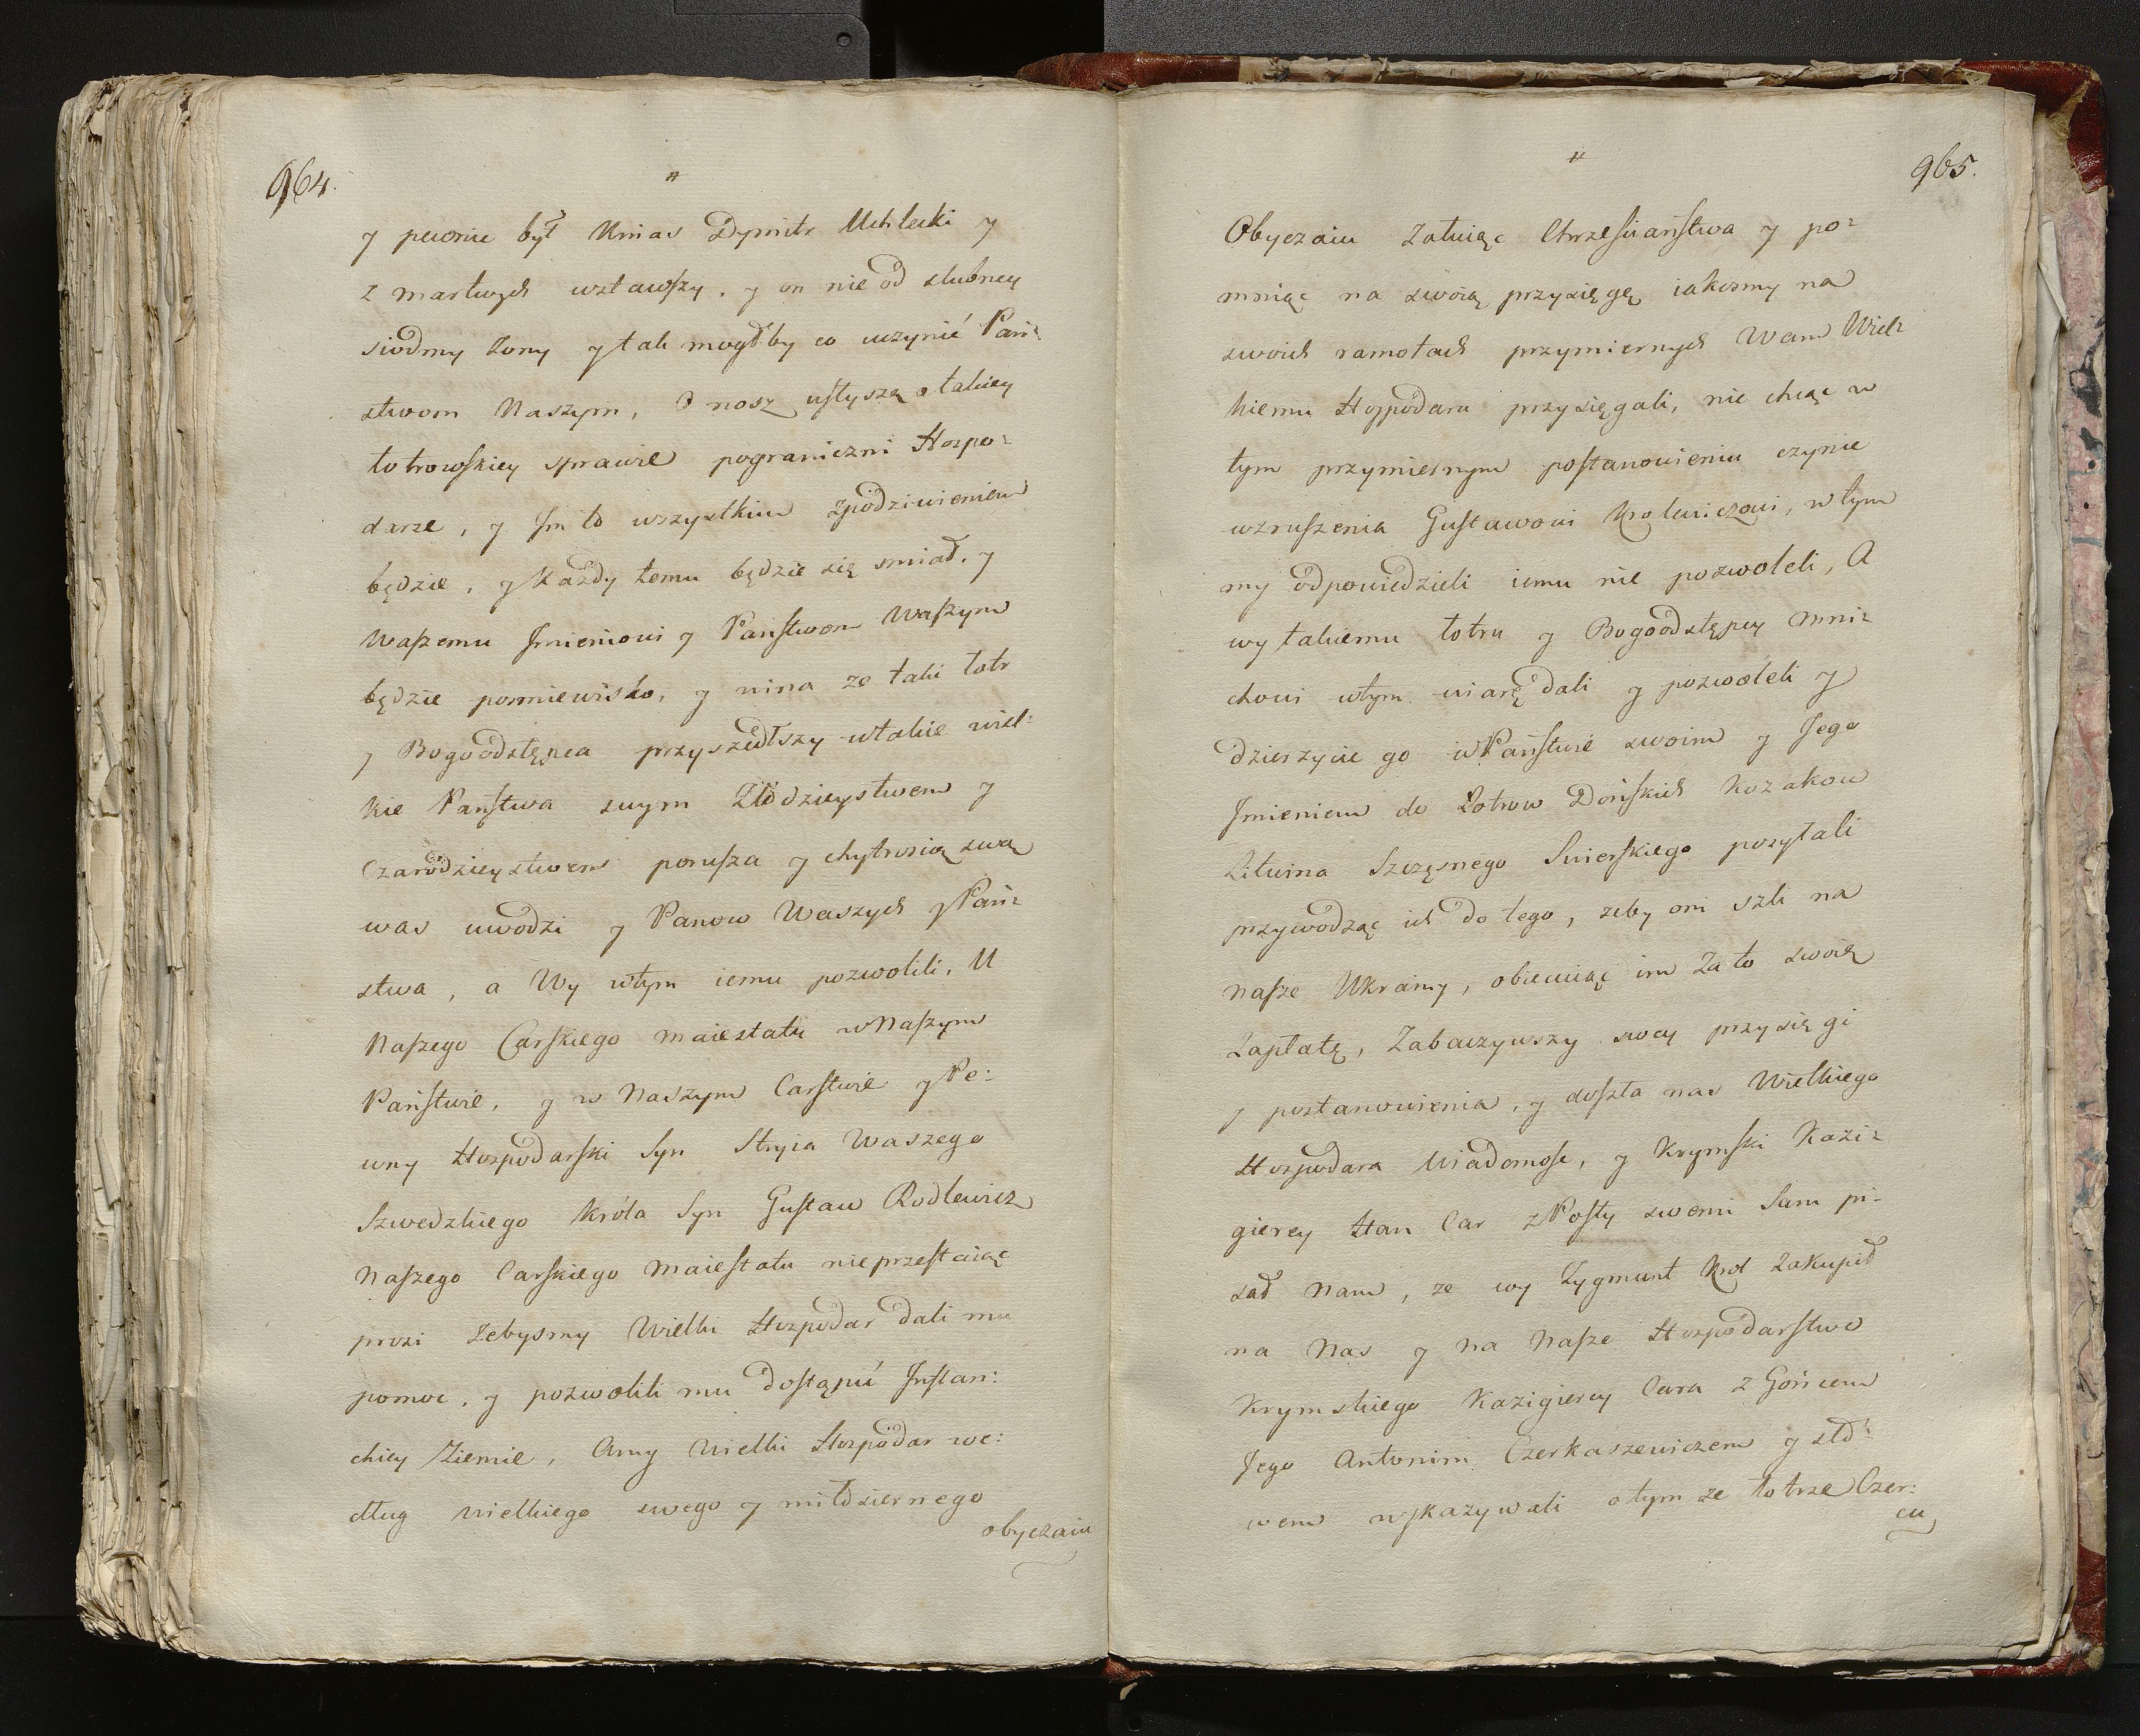 964.
y pewnie był Knias Dymitr Uchlecki y
z martwych wstawszy. y on nie od slubney
siodmy żony y tak mogłby co uczynić Pań:
stwom Naszym, O nosz usłyszą o takiey
łotrowskiey sprawie pograniczni Hospo:
darze, y Im to wszystkim z podziwieniem
będzie, y Każdy temu będzie się smiał. y
Waszemu Imieniowi y Państwom Waszym
będzie posmiewisko, y wina ze taki łotr
y Bogoodstępca przyszedłszy w takie wiel:
kie Państwa swym Złodzieystwem y
Czarodzieystwem porusza y chytrością swą
was uwodzi y Panow Waszych y Pań:
stwa, a Wy w tym iemu pozwolili, U
Naszego Carskiego maiestatu w Naszym
Państwie, y w Naszym Carstwie y Pe:
wny Hospodarski Syn Stryia Waszego
Szwedzkiego Króla Syn Gustaw Rodlewicz
Naszego Carskiego Maiestatu nieprzestaiąc
prosi żebysmy Wielki Hospodar dali mu
pomoc, y pozwolili mu dostąpić Instan:
chiey Ziemie, Amy Wielki Hospodar we:
dług wielkiego swego y miłosiernego
obyczaiu
965.
Obyczaiu żałuiąc Chrzesciaństwa y po:
mniąc na swoią przysięgę iakosmy na
swoich ramotach przymiernych Wam Wiel:
kiemu Hospodaru przysięgali, nie chcąc w
tym przymiernym postanowieniu czynic
wzruszenia Gustawowi Krolewiczowi, w tym
my odpowiedzieli iemu nie pozwoleli, A
wy takiemu łotru y Bogoodstępcy Mni:
chowi w tym wiarę dali y pozwoleli y
dzierzycie go w Państwie swoim y Jego
Imieniem do Łotrow Dońskich Kozakow
Litwina Szczęsnego Swierskiego posyłali
przywodząc ich do tego, żeby oni szli na
Nasze Ukrainy, obiecuiąc im za to swoię
Zapłatę, Zabaczywszy swey przysięgi
y postanowienia, y doszła nas Wielkiego
Hospodara Wiadomosc, y Krymski Kazi:
gierey Han Car z Posły swemi Sam pi:
sał Nam, ze wy Zygmunt Krol Zakupił
na Nas y na Nasze Hospodarstwo
Krymskiego Kazigierey Cara z Gońcem
Jego Antonim Czerkaszewiczem y sło:
wem wskazywali o tym ze łotrze Czer:
cu